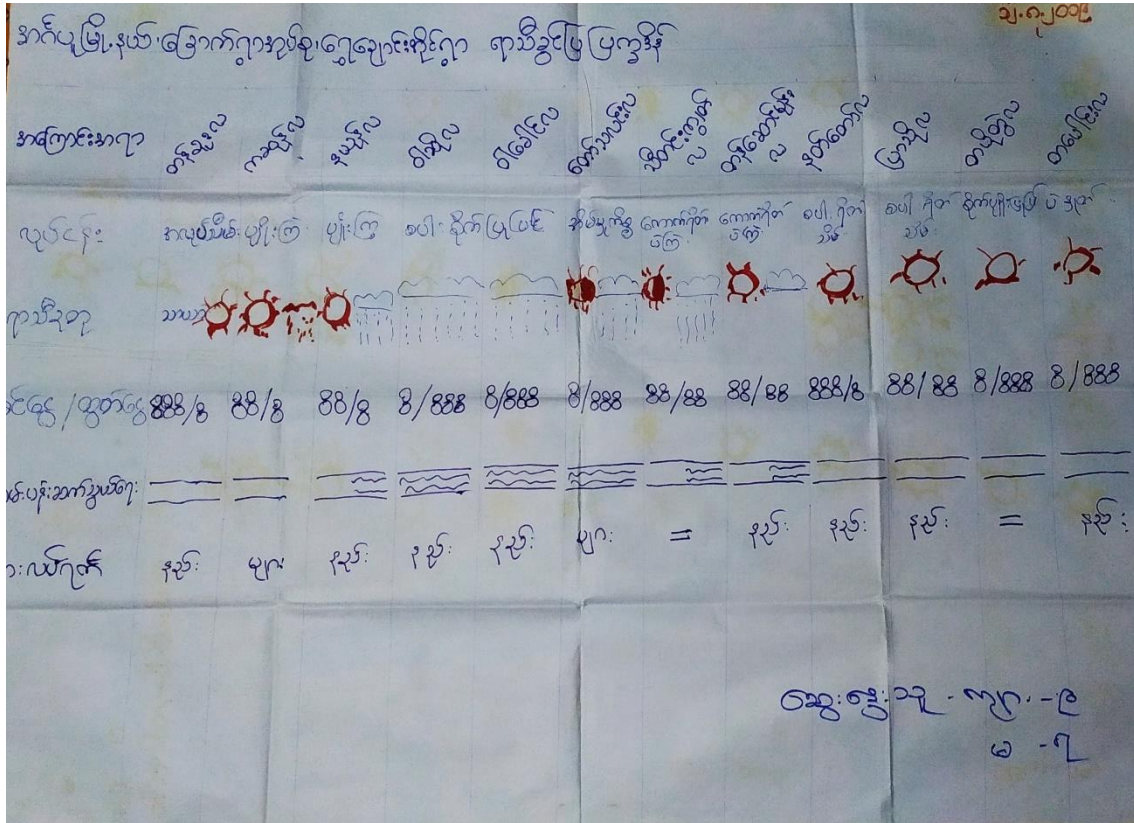 ၁၂.၈.၂၀၁၉
အင်္ဂပူမြို့နယ်၊ခြောက်ရွာအုပ်စု၊ရွှေချောင်းဆိုင်ရွာ ရာသီခွင်ပြ ပြက္ခဒိန်
အကြောင်းအရာ တန်ခူးလ ကဆုန်လ နယုန်လ ဝါဆိုလ ဝါခေါင်လ တော်သလင်းလ သီတင်းကျွတ်လ တန်ဆောင်မုန်းလ နတ်တော်လ ပြာသိုလ တပို့တွဲလ တပေါင်းလ
လုပ်ငန်း အလုပ်သိမ်း ပျိုးကြဲ ပျိုးကြဲ စပါးစိုက် ပြုပြင် အိမ်မှုကိစ္စ ကောက်ရိတ် ပဲကြဲ ကောက်ရိတ် ပဲကြဲ စပါးရိတ် သိမ်း စပါးရိတ် သိမ်း စိုက်ပျိုးပြုပြင် ပဲနုတ်
ရာသီဥတု
ဝင်ငွေ/ထွက်ငွေ 888/8 88/8 88/8 8/888 8/888 8/888 88/88 88/88 888/8 88/88 8/888 8/888
လမ်းပန်းဆက်သွယ်ရေး
နည်း များ နည်း နည်း နည်း များ = နည်း နည်း နည်း = နည်း
ဆွေးနွေးသူ - ကျား - ၉
မ - ၇